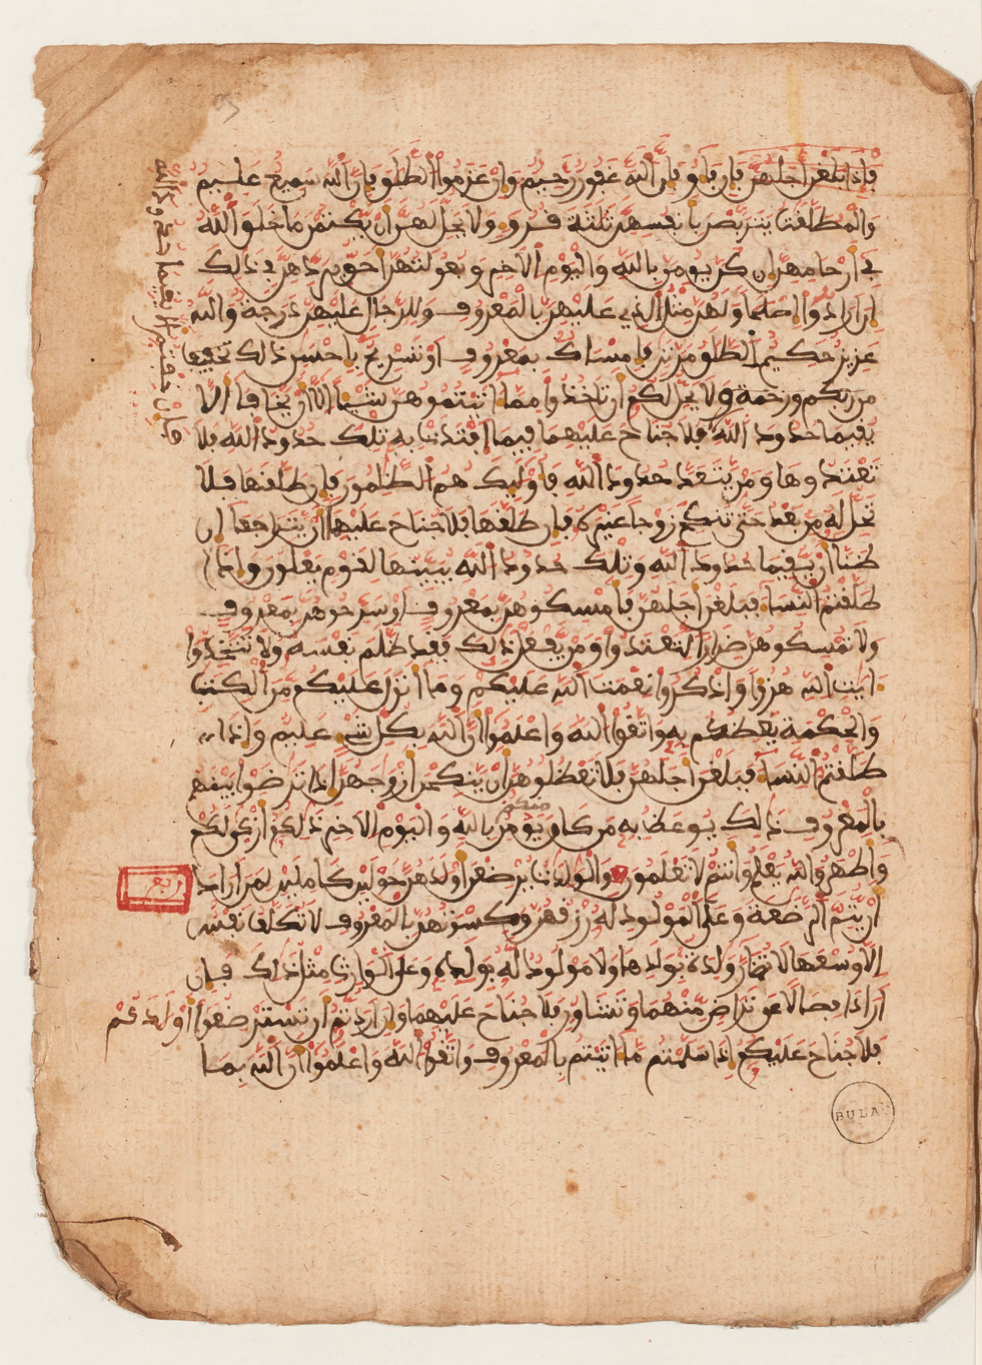 فإذا بلغن اجلهن فإن فاءو فإن الله غفور رحيم وإن عزموا الطلق فإن الله سميع عليم
والمطلقت يتربصن بانفسهن ثلثة قروء ولا يحل لهن ان يكتمن ما خلق الله
في ارحامهن ان كن يومن بالله واليوم الاخر وبعولتهن احق بردهن في ذلك
ان ارادوا اصلحا ولهن مثل الذي عليهن بالمعروف وللرجال عليهن درجة والله
عزيز حكيم الطلق مرتن فإمساك بمعروف او تسريح باحسن ذلك تخفيف
من ربكم ورحمة ولا يحل لكم ان تاخذوا مما اتيتموهن شيا الا ان يخافا الا
يقيما حدود الله فلا جناح عليهما فيما افتدت به تلك حدود الله فلا
فإن خفتم الا يقيما حدود الله
تعتدوها ومن يتعد حدود الله فاوليك هم الظلمون فإن طلقها فلا
تحل له من بعد حتى تنكح زوجا غيره فإن طلقها فلا جناح عليهما ان يتراجعا ان
ظنا ان يقيما حدود الله وتلك حدود الله يبينها لقوم يعلمون واذا
طلقتم النساء فبلغن اجلهن فامسكوهن بمعروف او سرحوهن بمعروف
ولا تمسكوهن ضرارا لتعتدوا ومن يفعل ذلك فقد ظلم نفسه ولا تتخذوا
ايت الله هزؤا واذكروا نعمت الله عليكم وما انزل عليكم من الكتب
والحكمة يعظكم به واتقوا الله واعلموا ان الله بكل شيء عليم واذا
طلقتم النساء فبلغن اجلهن فلا تعظلوهن ان ينكحن ازوجهن اذا ترضوا بينهم
بالمعروف ذلك يوعظ به من كان منكم يومن بالله واليوم الاخر ذلكم ازكى لكم
واطهر والله يعلم وانتم لا تعلمون والولدت يرضعن اولدهن حولين كاملين لمن اراد
ربع
ان يتم الرضعة وعلى المولود له رزقهن وكسوتهن بالمعروف لا تكلف نفس
الا وسعها لا تضار ولدة بولدها ولا مولود له بولده وعلى الوارث مثل ذلك فإن
ارادا فصالا عن تراض منهما وتشاور فلا جناح عليهما وان اردتم ان تسترضعوا اولدكم
فلا جناح عليكم اذا سلمتم ما اتيتم بالمعروف واتقوا الله واعلموا ان الله بما
BULAC